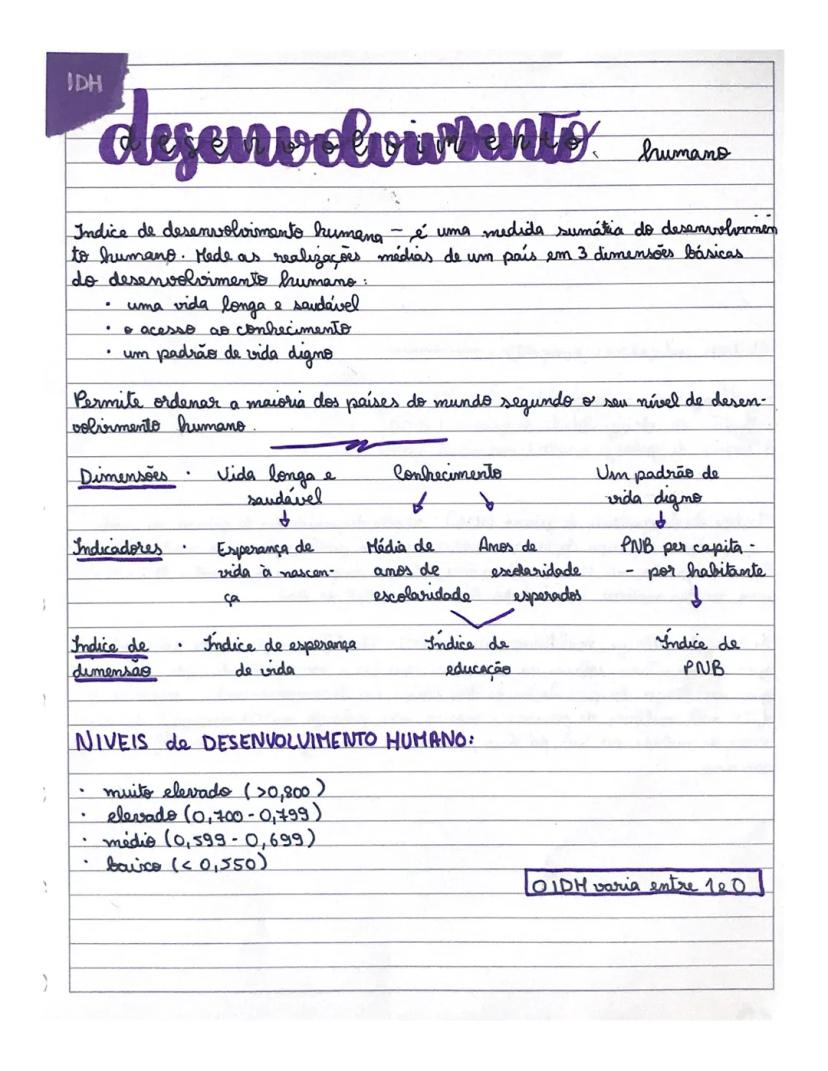 IDH
desenvolvimento humano
Indice de desenvolvimento humana - é uma medida sumátia do desenvolvimen
to humano. Mede as realizações médias de um país em 3 dimensões básicas
do desenvolvimento humano:
• uma vida longa e saudável
• o acesso ao conhecimento
• um padrão de vida digno
Permite ordenar a maioria dos países do mundo segundo o seu nível de desen-
volvimento humano.
Dimensões • Vida longa e Conhecimento Um padrão de
saudável vida digno
Indicadores • Esperança de Média de Anos de PNB per capita -
vida à nascen- anos de escolaridade - por habitante
ça escolaridade esperados
Indice de • Índice de esperança Índice de Índice de
dimensão de vida educação PNB
NIVEIS de DESENVOLVIMENTO HUMANO:
• muito elevado (>0,800)
• elevado (0,700 - 0,799)
• médio (0,599 - 0,699)
• baixo (< 0,550)
O IDH varia entre 1 e 0